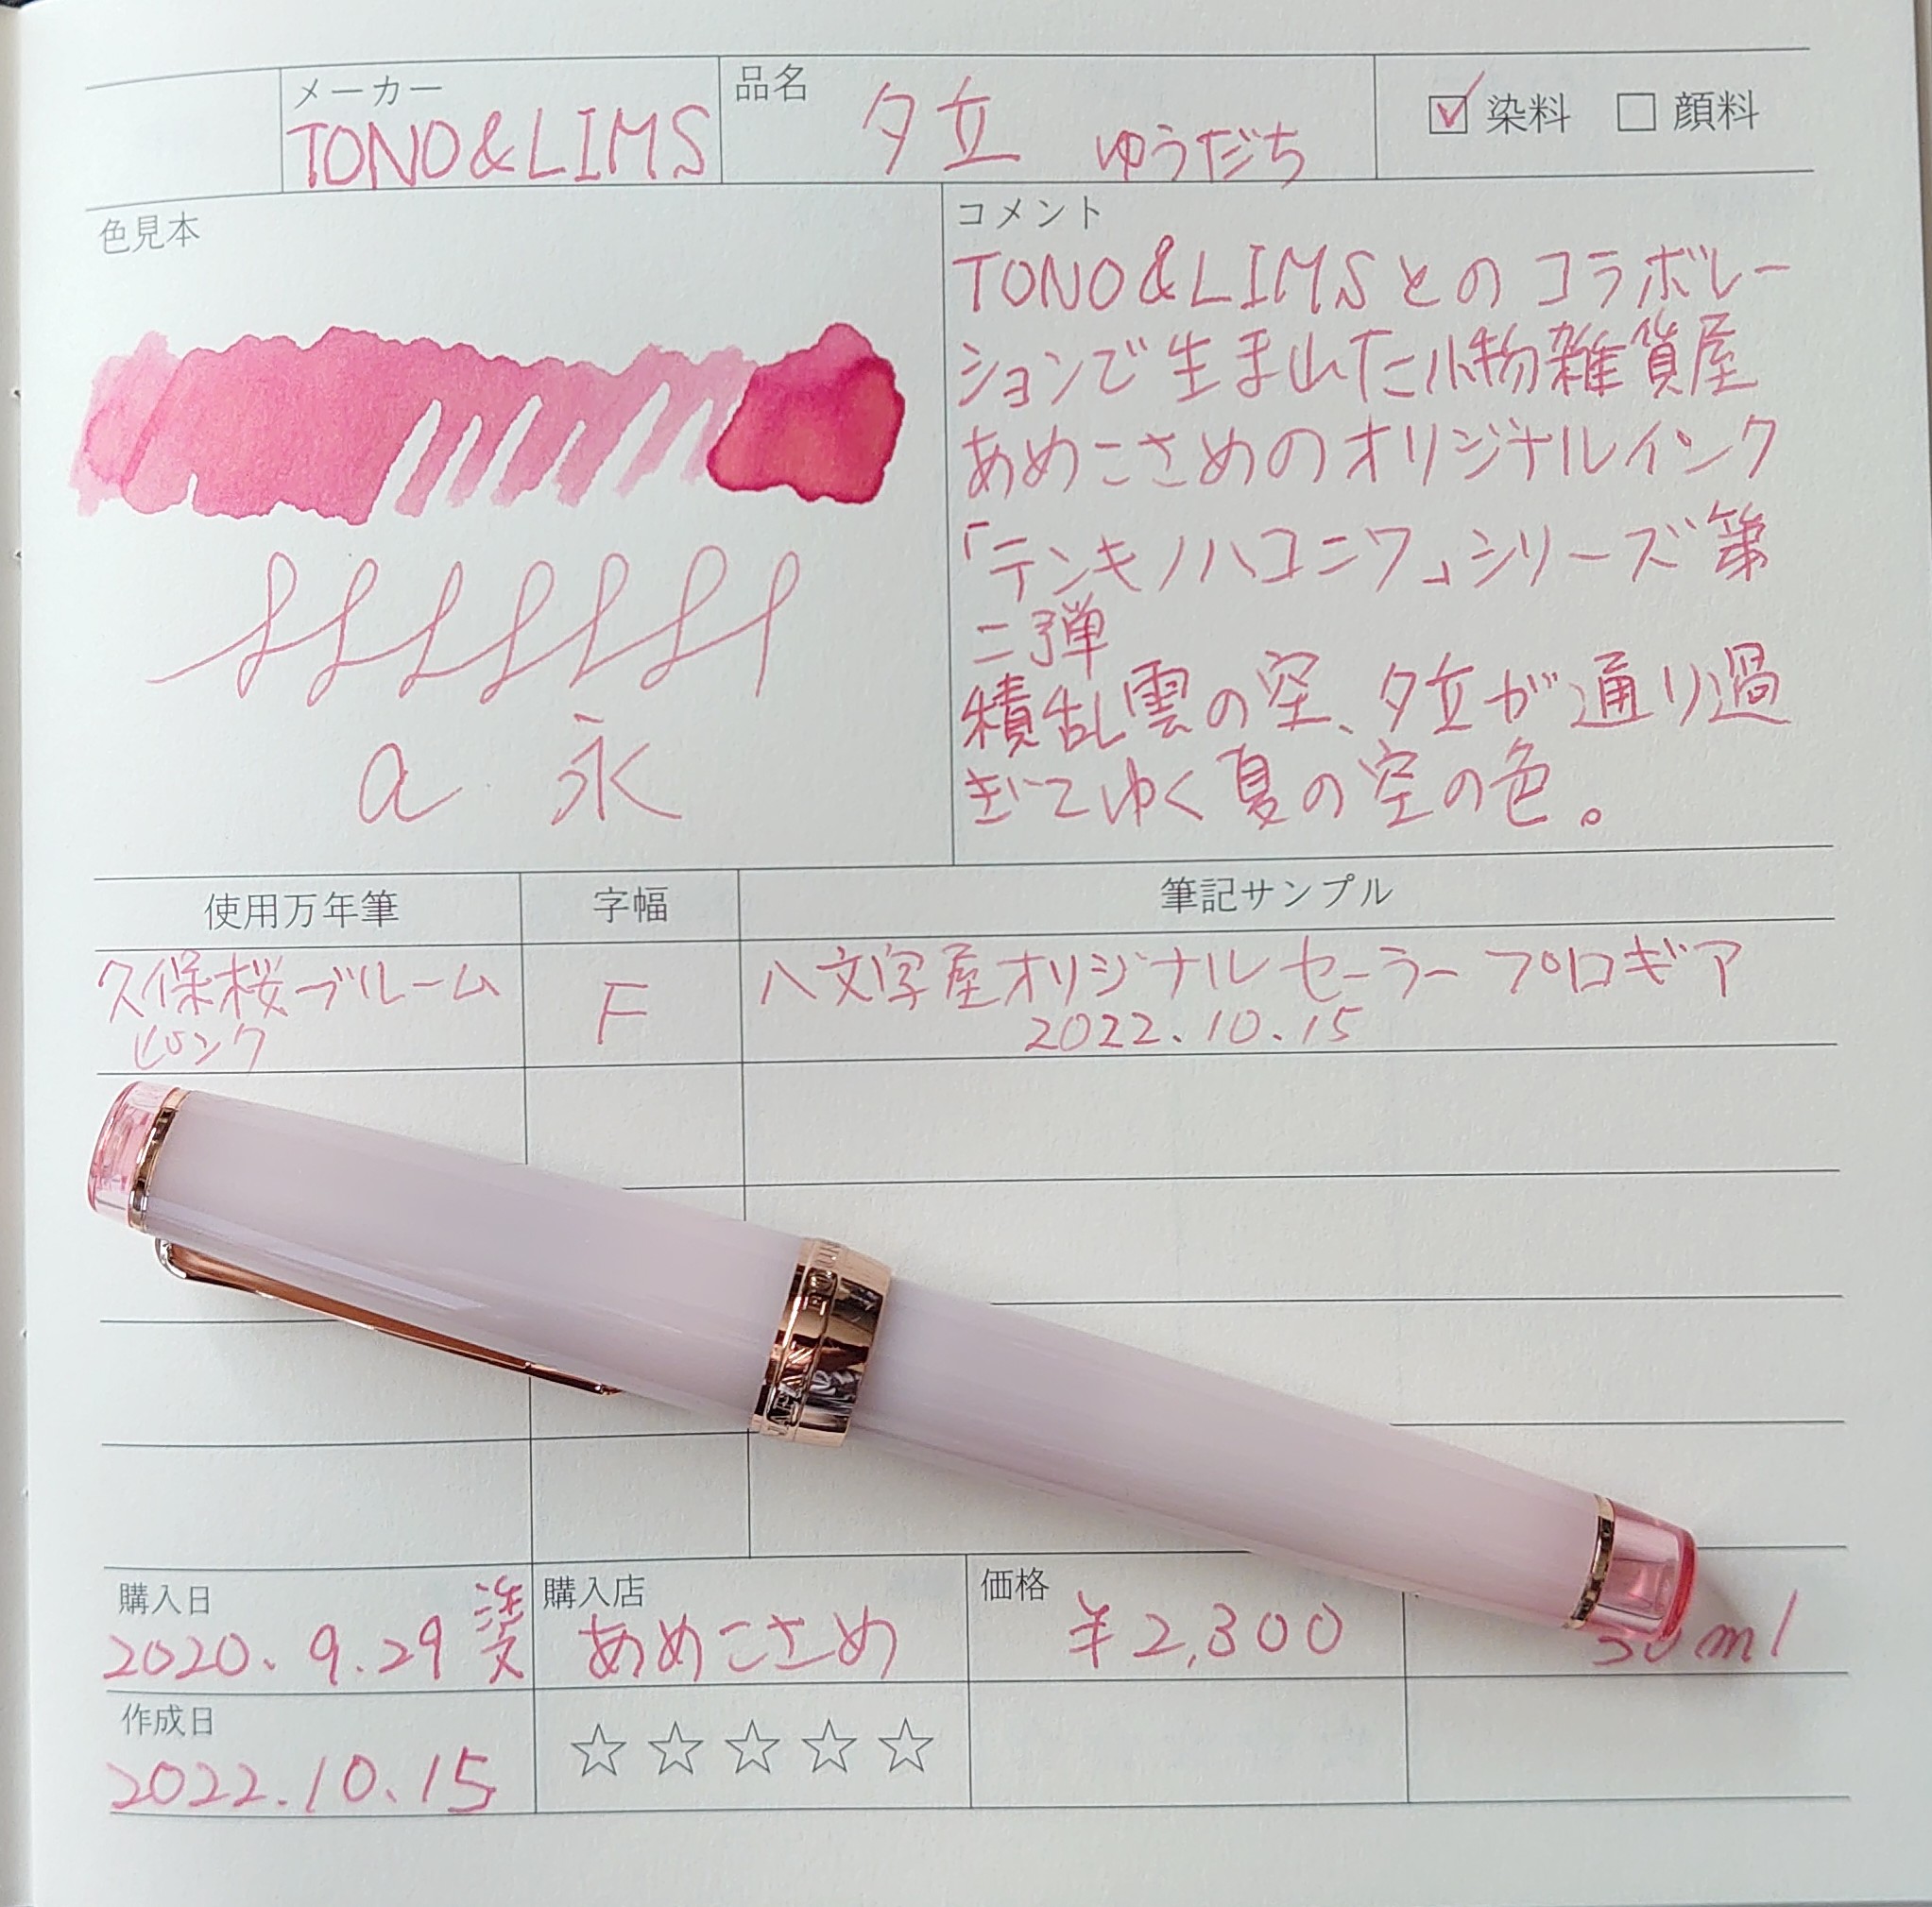 メーカー
TONO&LIMS
品名
夕立 ゆうだち
☑ 染料 □ 顔料
色見本
a 永
コメント
TONO&LIMSとのコラボレー
ションで生まれた小物雑貨屋
あめこさめのオリジナルインク
「テンキノハコニワ」シリーズ第
二弾
積乱雲の空、夕立が通り過
ぎてゆく夏の空の色。
使用万年筆
字幅
筆記サンプル
久保桜ブルーム
ピンク
F
八文字屋オリジナル セーラー プロギア
2022.10.15
購入日
2020.9.29
購入店
あめこさめ
価格
¥2,300
30ml
作成日
2022.10.15
☆☆☆☆☆